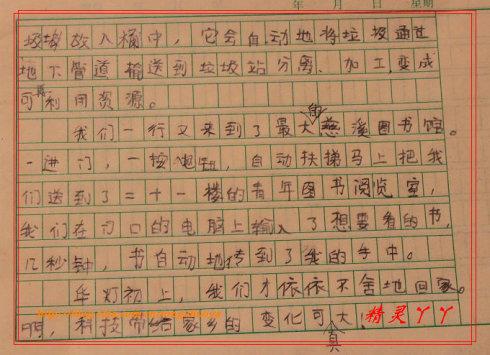 年 月 日 星期
圾掉放入桶中，它会自动地将垃圾通过
地下管道输送到垃圾站分离、加工，变成
可再利用资源。
我们一行又来到了最大的慈溪图书馆。
一进门，一按电钮，自动扶梯马上把我
们送到了二十一楼的青年图书阅览室，
我们在门口的电脑上输入了想要看的书，
几秒钟，书自动地传到了我的手中。
华灯初上，我们才依依不舍地回家。
啊，科技带给家乡的变化可真大！
精灵丫丫